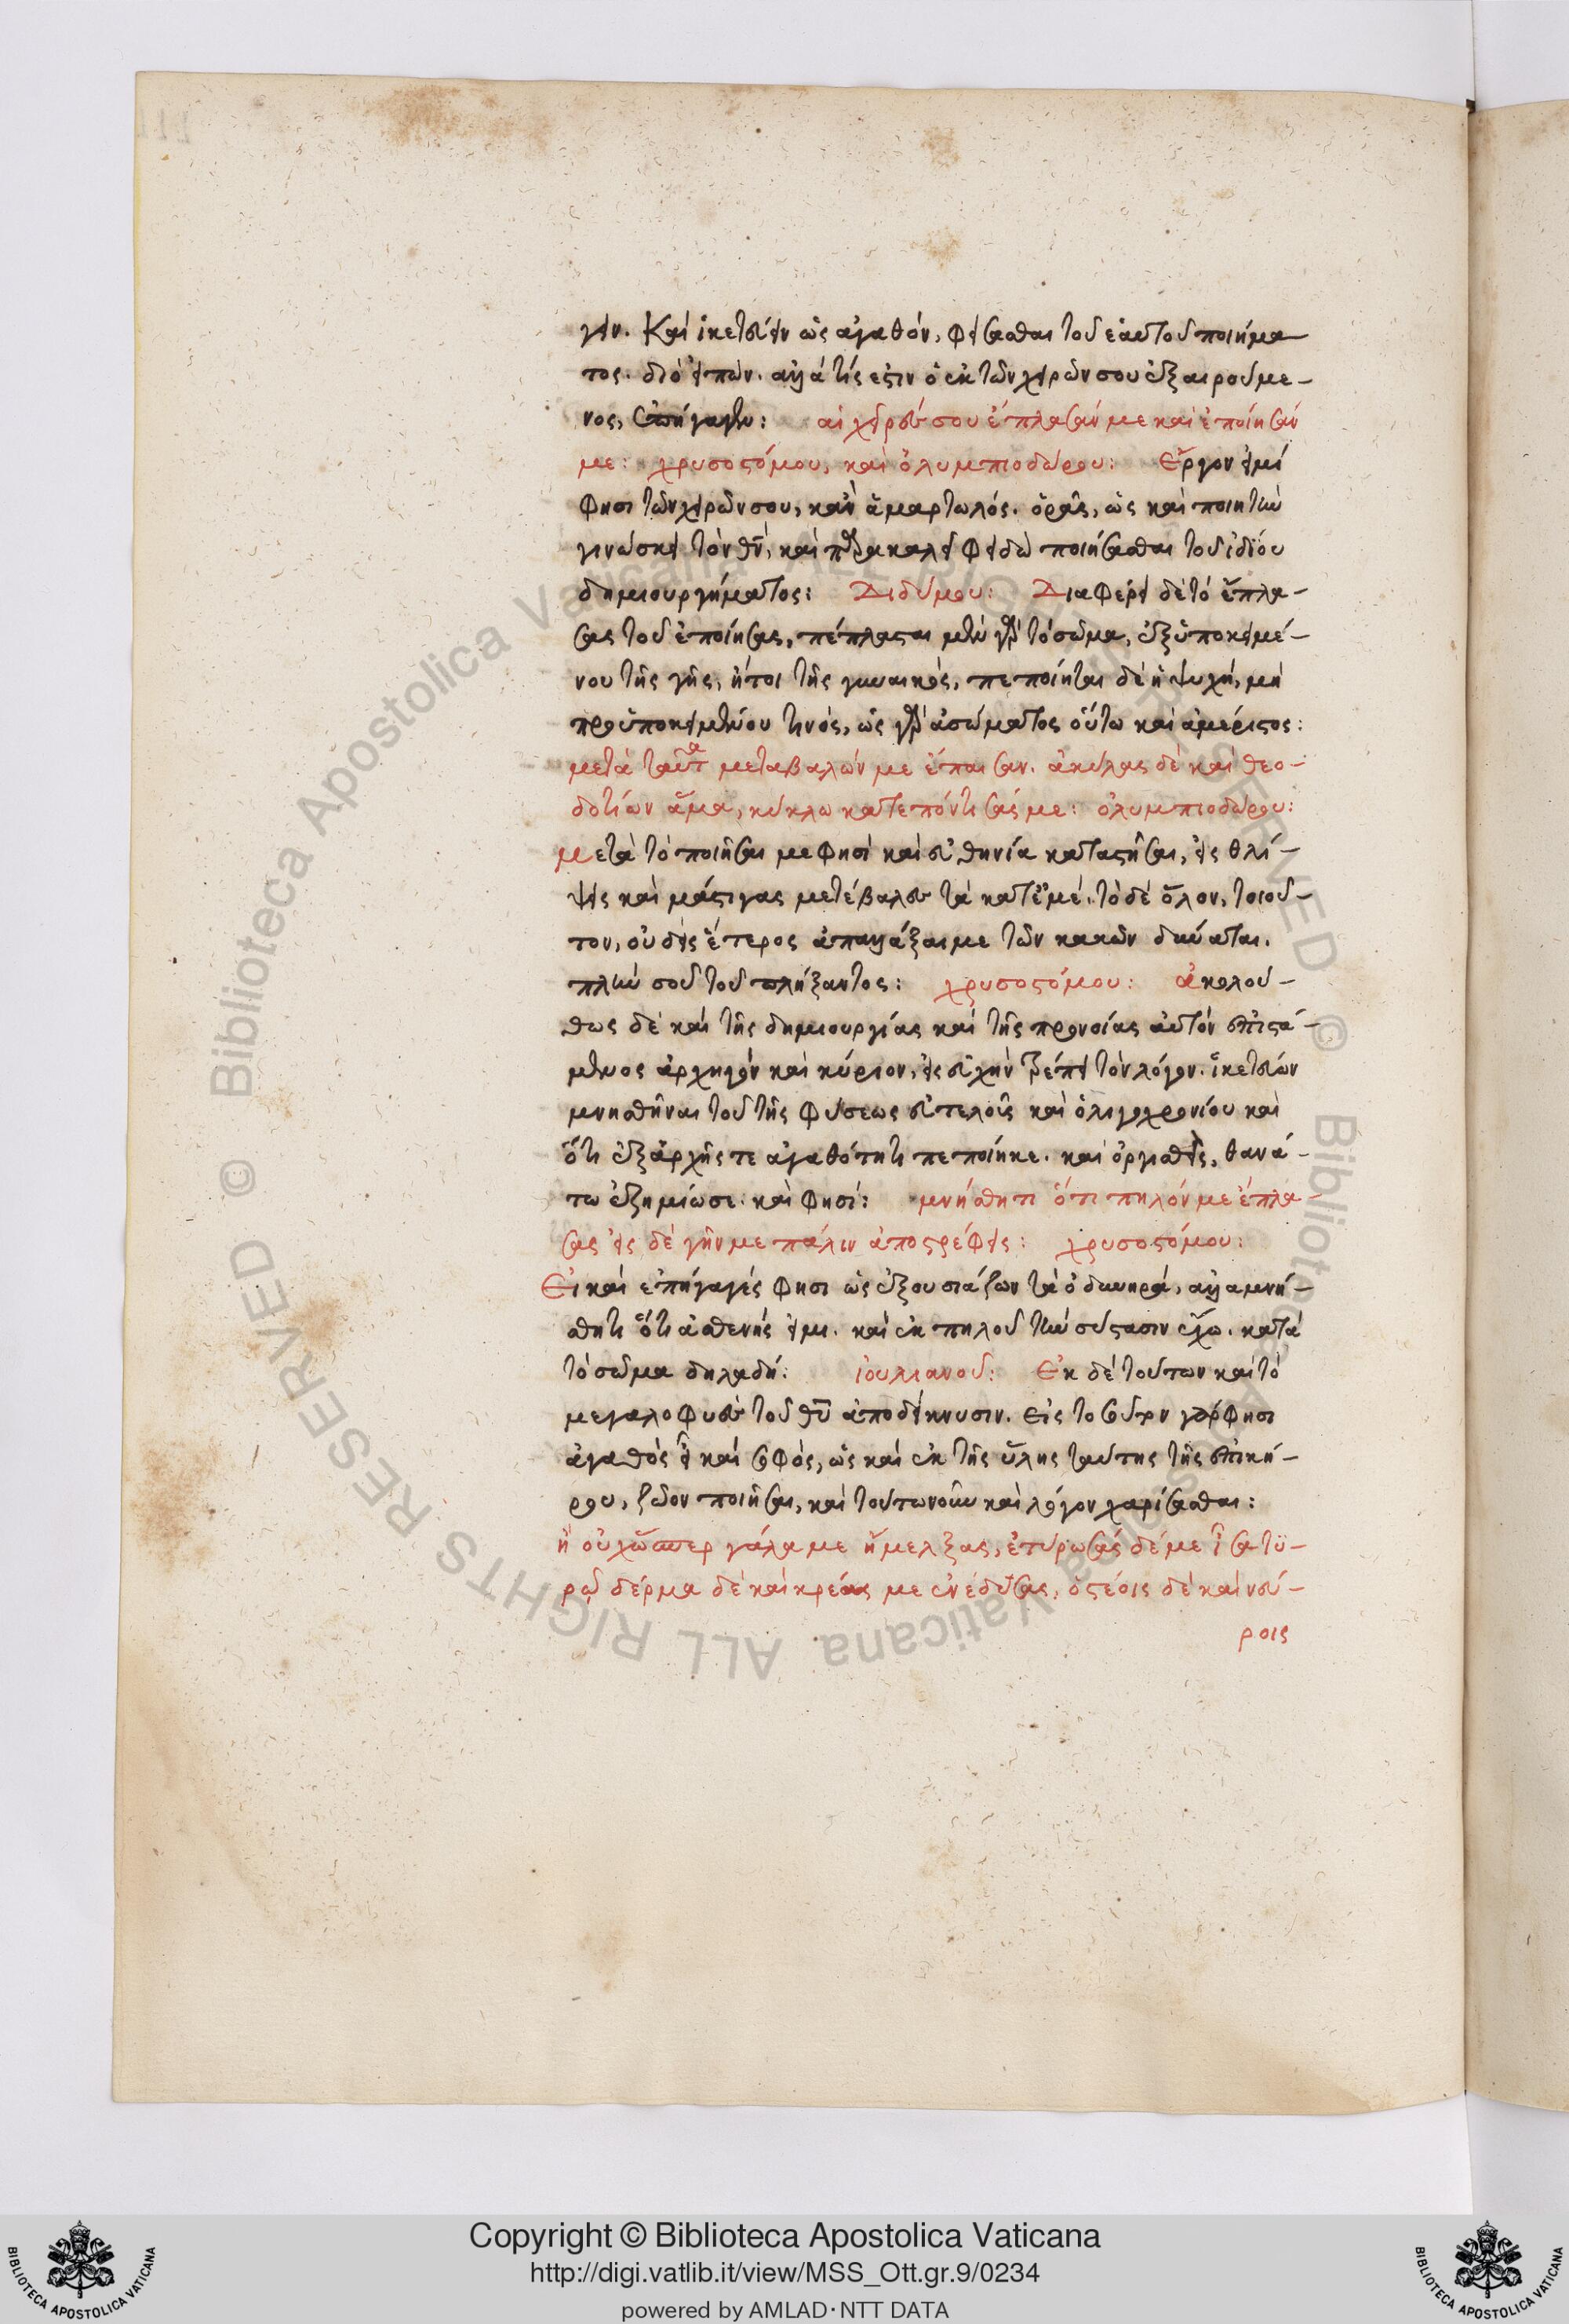 γειν. Καὶ ἱκετεύειν ὡς ἀγαθὸν, φείσασθαι τοῦ ἑαυτοῦ ποιήμα
τος. διὸ εἰπὼν. ἀλλὰ τίς ἐστιν ὁ ἐκ τῶν χειρῶν σου ἐξαιρούμε-
νος, ἐπήγαγεν: αἱ χεῖρές σου ἔπλασάν με καὶ ἐποίησάν
με: χρυσοστόμου, καὶ ὀλυμπιοδώρου: Ἔργον εἰμί
φησι τῶν χειρῶν σου, κἂν ἁμαρτωλός. ὁρᾷς, ὡς καὶ ποιητὴν
γινώσκει τὸν θν̄, καὶ παρακαλεῖ φειδὼ ποιήσασθαι τοῦ ἰδίου
δημιουργήματος: Διδύμου: Διαφέρει δὲ τὸ ἔπλα-
σας τοῦ ἐποίησας, πέπλασται μὲν γὰρ τὸ σῶμα, ἐξ ὑποκειμέ-
νου τῆς γῆς, ἤτοι τῆς γυναικός, πεποίηται δὲ ἡ ψυχή, μὴ
προϋποκειμένου τινός, ὡς γὰρ ἀσώματος οὕτω καὶ ἀμέριστος:
μετὰ ταῦτα μεταβαλών με ἔπαισαν. ἀκύλας δὲ καὶ θεο-
δοτίων ἅμα, κύκλω κατεπόντισάς με: ὀλυμπιοδώρου:
Μετὰ τὸ ποιῆσαι με φησὶ καὶ εὐθηνία καταστῆσαι, εἰς θλί-
ψεις καὶ μάστιγας μετέβαλες τὰ κατ' ἐμέ. τὸ δὲ ὅλον, τοιοῦ-
τον, οὐδεὶς ἕτερος ἀπαλλάξαι με τῶν κακῶν δύναται.
πλὴν σοῦ τοῦ πλήξαντος: χρυσοστόμου: ἀκολού-
θως δὲ καὶ τῆς δημιουργίας καὶ τῆς προνοίας αὐτὸν ἐπιστά-
μενος ἀρχηγὸν καὶ κύριον, εἰς εὐχὴν τρέπει τὸν λόγον. ἱκετεύων
μνησθῆναι τοῦ τῆς φύσεως εὐτελοῦς καὶ ὀλιγοχρονίου καὶ
ὅτι ἐξ ἀρχῆς τε ἀγαθότητι πεποίηκε. καὶ ὀργισθεὶς, θανά-
τω ἐζημίωσε. καὶ φησί: μνήσθητι ὅτι πηλόν με ἔπλα-
σας εἰς δὲ γῆν με πάλιν ἀποστρέφεις: χρυσοστόμου:
Εἰ καὶ ἐπήγαγές φησι ὡς ἐξουσιάζων τὰ ὀδυνηρά, ἀλλα μνή-
σθητι ὅτι ἀσθενής εἰμι. καὶ ἐκ πηλοῦ τὴν σύστασιν ἔχω. κατὰ
τὸ σῶμα δηλαδή: ἰουλιανοῦ: Ἐκ δὲ τούτων καὶ τὸ
μεγαλοφυὲς τοῦ θῡ ἀποδείκνυσιν. εἰς τοσοῦτον γάρ φησι
ἀγαθὸς εἶ καὶ σοφός, ὡς καὶ ἐκ τῆς ὕλης ταύτης τῆς ἐπική-
ρου, ζῶον ποιῆσαι, καὶ τούτω νοῦν καὶ λόγον χαρίσασθαι:
ἢ οὐχ ὥσπερ γάλα με ἤμελξας, ἐτύρωσάς δέ με ἶσα τυ-
ρῶ δέρμα δὲ καὶ κρέας με ἐνέδυσας, ὀστέοις δὲ καὶ νεύ-
ροις
Copyright © Biblioteca Apostolica Vaticana
http://digi.vatlib.it/view/MSS_Ott.gr.9/0234
powered by AMLAD·NTT DATA
BIBLIOTECA APOSTOLICA VATICANA
BIBLIOTECA APOSTOLICA VATICANA
© Biblioteca Apostolica Vaticana ALL RIGHTS RESERVED © Biblioteca Apostolica Vaticana ALL RIGHTS RESERVED